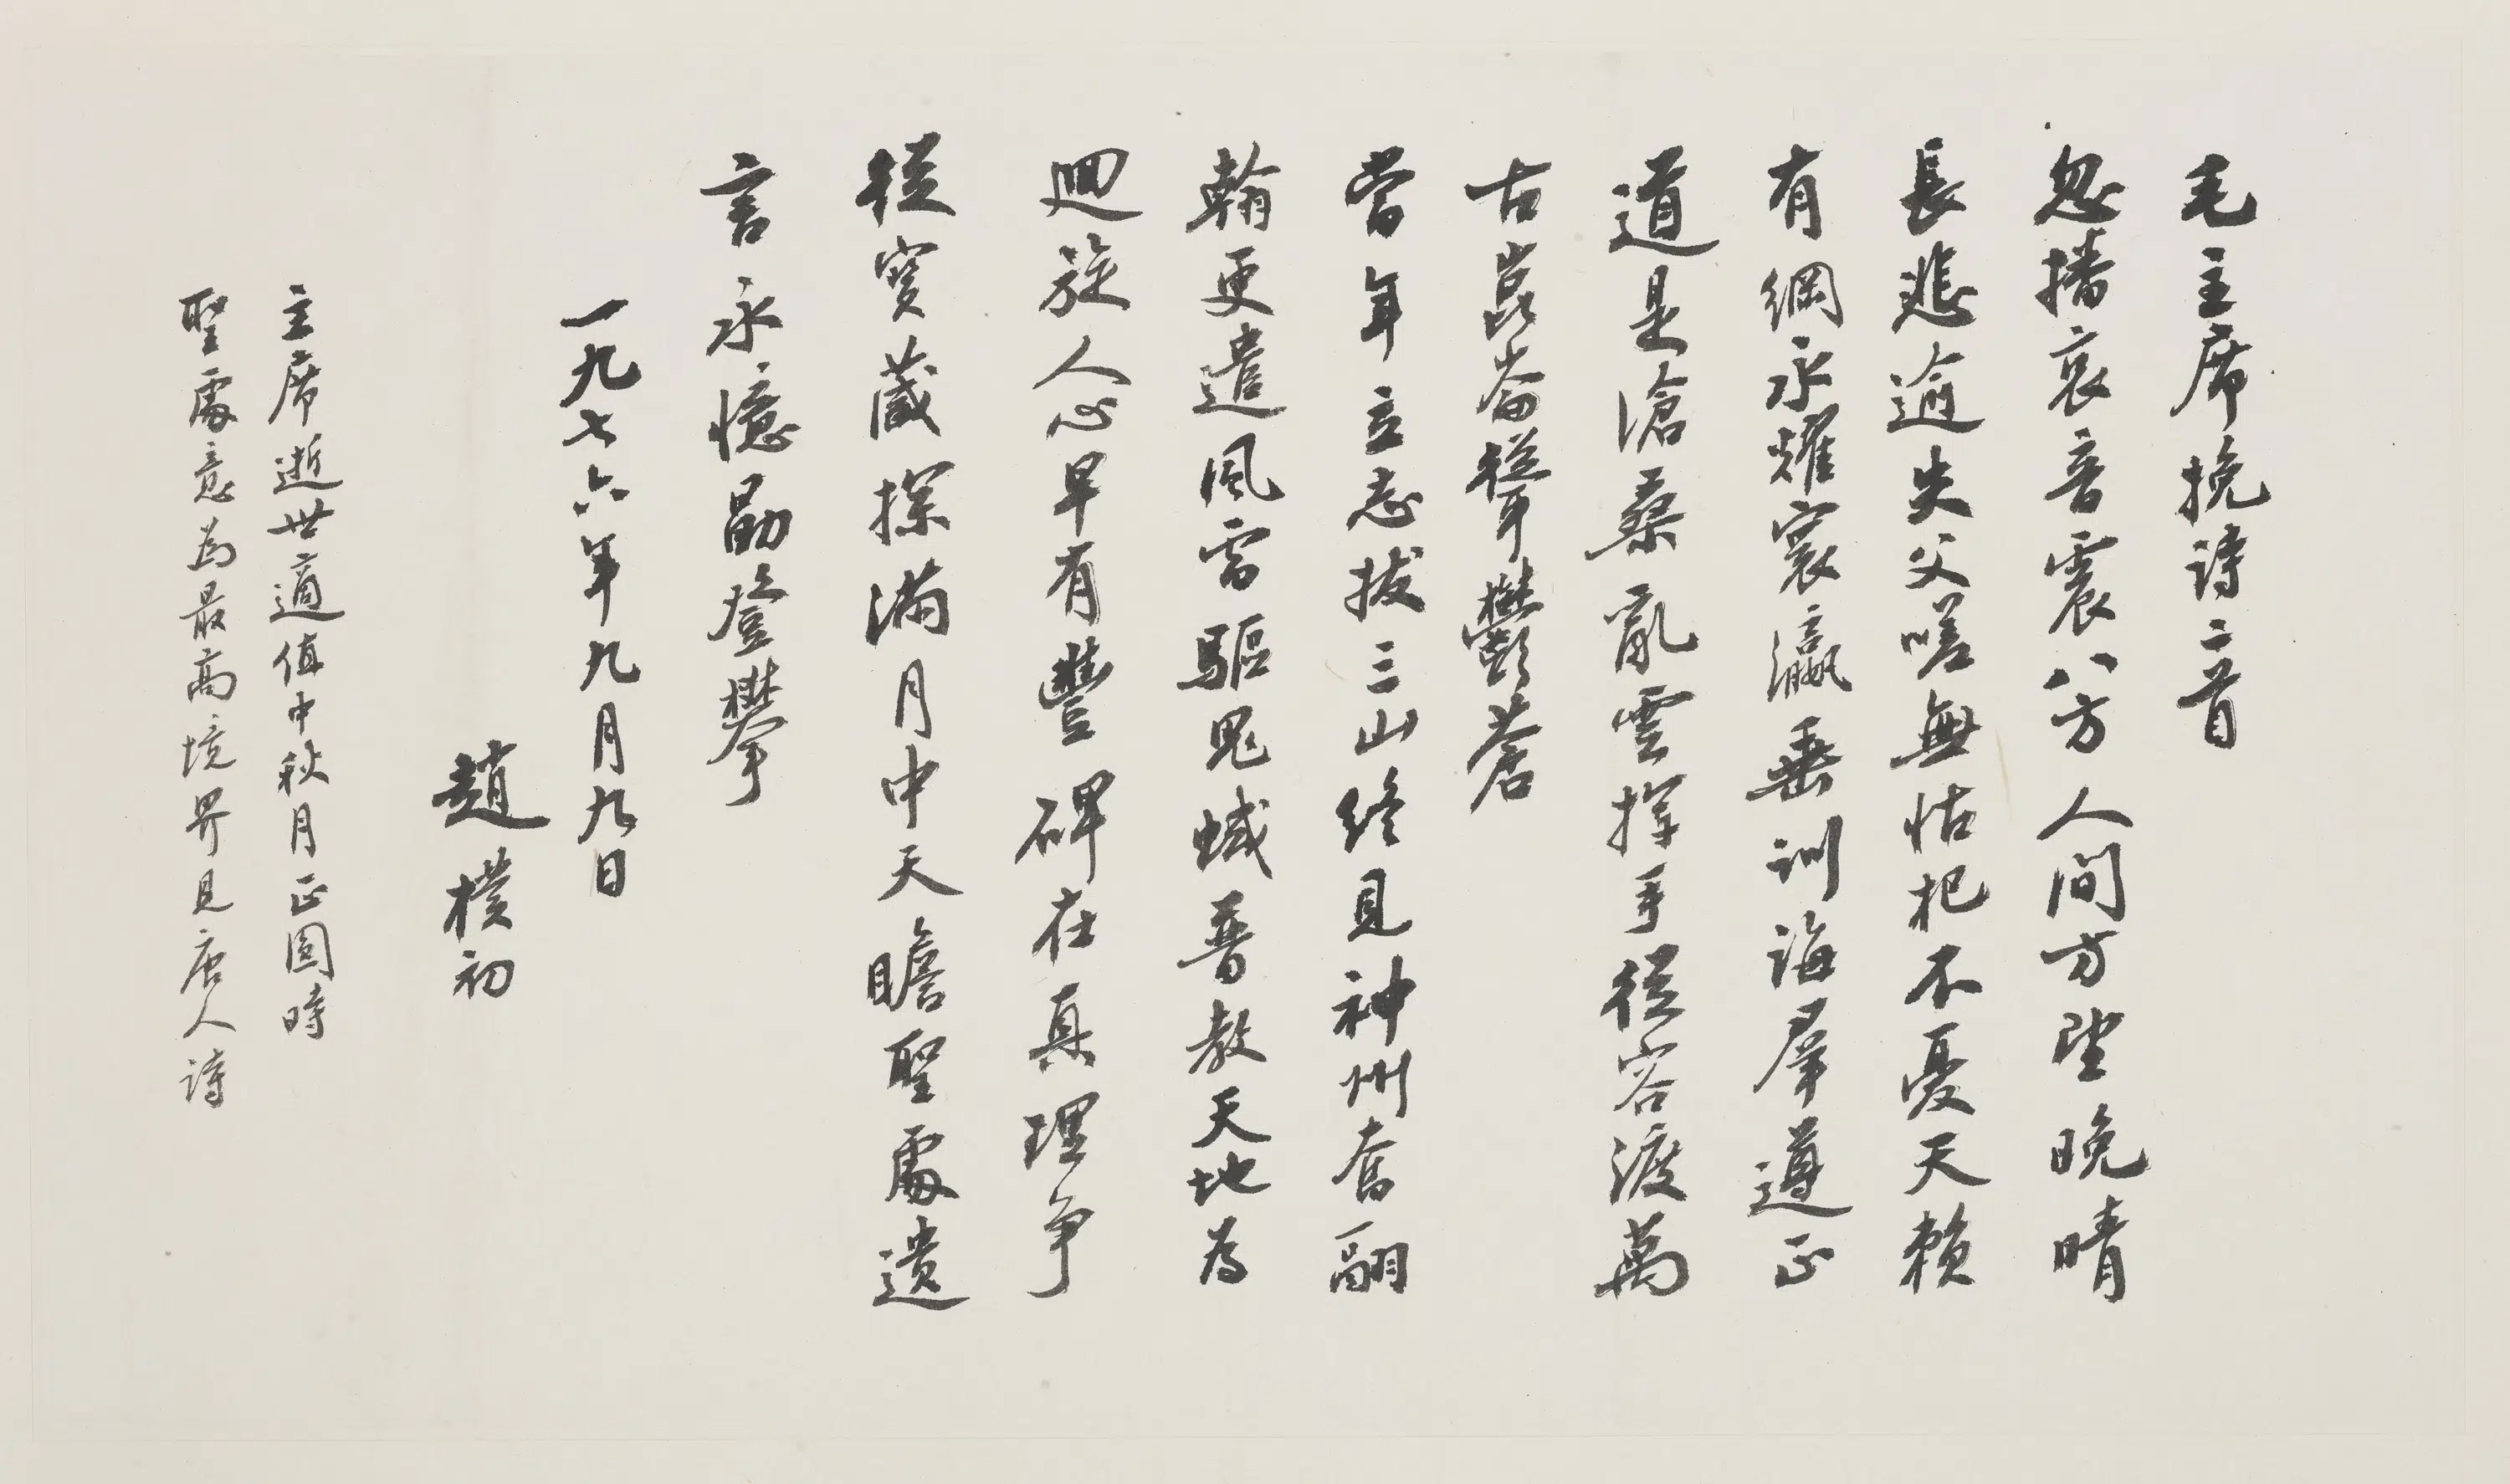 毛主席挽詩二首
忽播哀音震八方人間方望晚晴
長悲逾失父嗟無怙杞不憂天賴
有綱永耀寰瀛垂訓誨羣遵正
道是滄桑亂雲揮手從容渡萬
古崑崙聳鬱蒼
當年立志拔三山終見神州奮翮
翰更遣風雷驅鬼蜮普教天地為
迴旋人心早有豐碑在真理爭
從寶藏探滿月中天瞻聖處遺
言永憶勗登攀
一九七六年九月九日
趙樸初
主席逝世適值中秋月正圓時
聖處意為最高境界見唐人詩